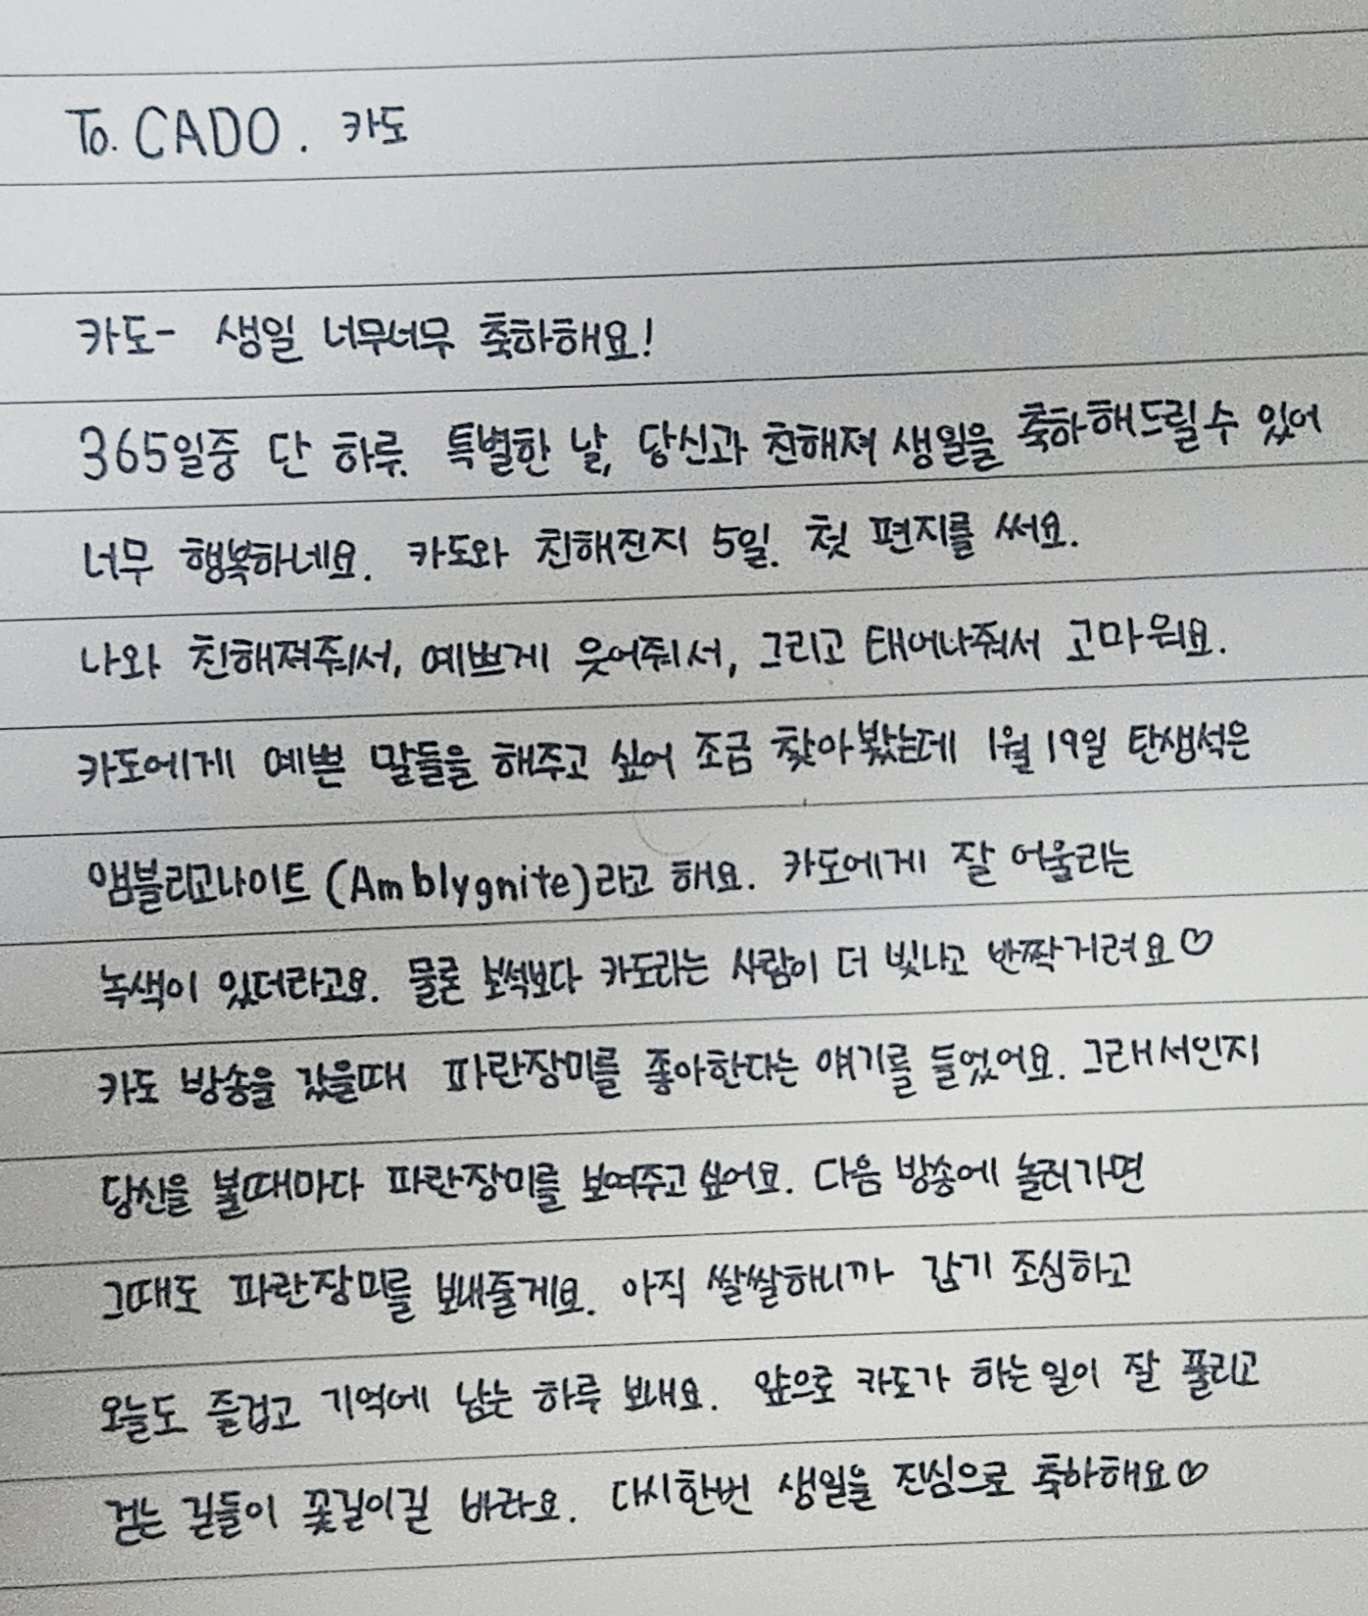 To. CADO. 카도
카도- 생일 너무너무 축하해요!
365일중 단 하루. 특별한 날, 당신과 친해져 생일을 축하해드릴수 있어
너무 행복하네요. 카도와 친해진지 5일. 첫 편지를 써요.
나와 친해져줘서, 예쁘게 웃어줘서, 그리고 태어나줘서 고마워요.
카도에게 예쁜 말들을 해주고 싶어 조금 찾아봤는데 1월 19일 탄생석은
앰블리고나이트 (Amblygnite)라고 해요. 카도에게 잘 어울리는
녹색이 있더라고요. 물론 보석보다 카도라는 사람이 더 빛나고 반짝거려요♡
카도 방송을 갔을때 파란장미를 좋아한다는 얘기를 들었어요. 그래서인지
당신을 볼때마다 파란장미를 보여주고 싶어요. 다음 방송에 놀러가면
그때도 파란장미를 보내줄게요. 아직 쌀쌀하니까 감기 조심하고
오늘도 즐겁고 기억에 남는 하루 보내요. 앞으로 카도가 하는일이 잘 풀리고
걷는 길들이 꽃길이길 바라요. 다시한번 생일을 진심으로 축하해요♡